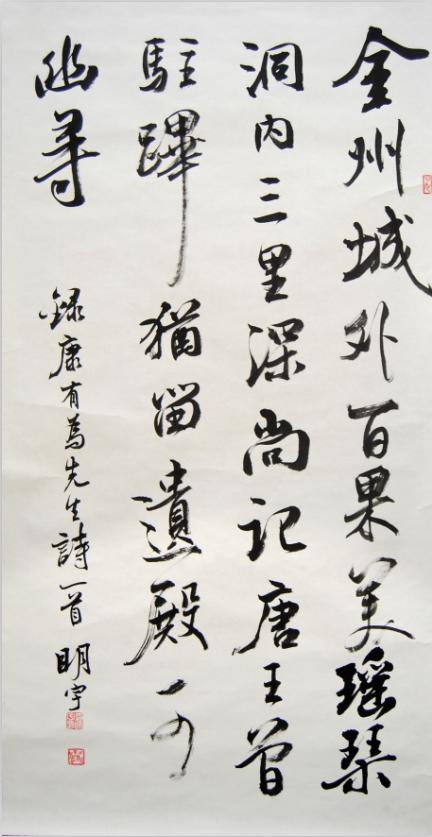 金州城外百果美瑶琴
洞内三里深尚记唐王曾
駐蹕猶留遺殿一可
幽尋
録康有為先生詩一首 明宇